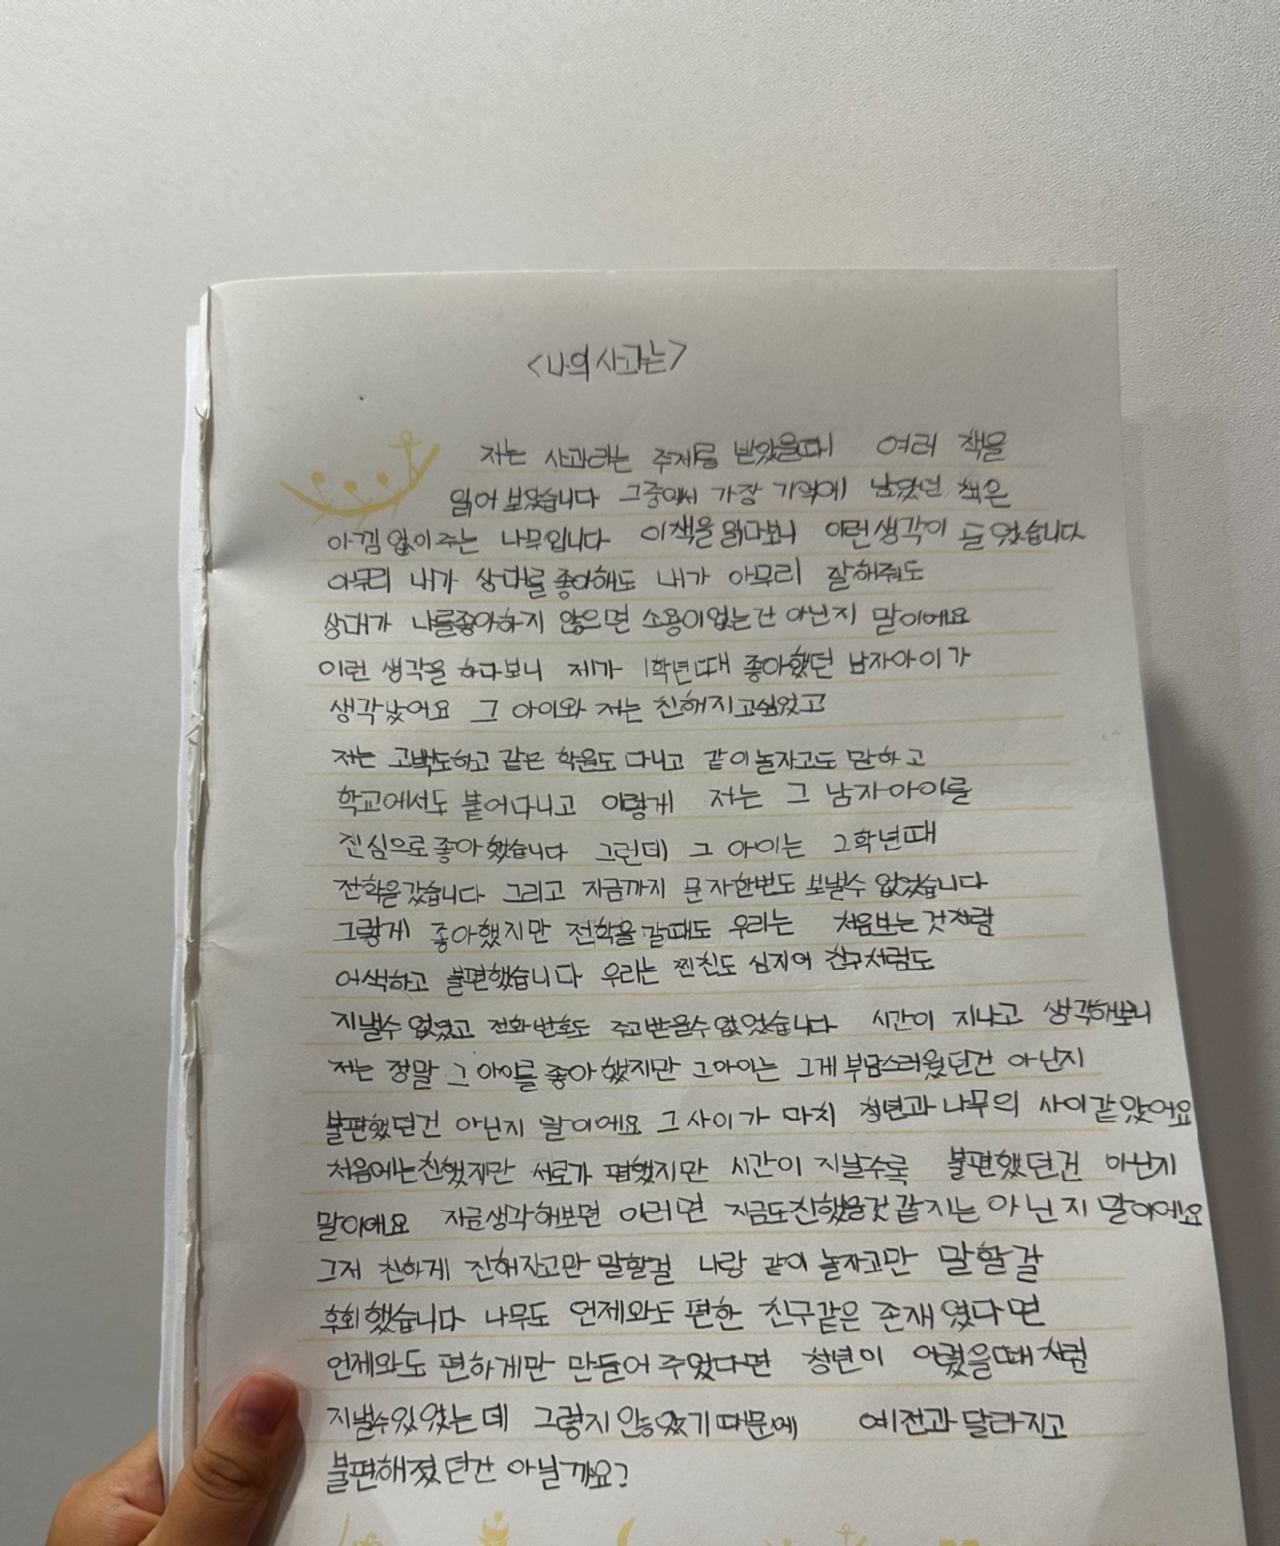 <나의 사과는>
저는 사과라는 주제를 받았을때 여러 책을
읽어 보았습니다 그중에서 가장 기억에 남았던 책은
아낌 없이 주는 나무입니다 이책을 읽다보니 이런생각이 들었습니다
아무리 내가 상대를 좋아해도 내가 아무리 잘해줘도
상대가 나를좋아하지 않으면 소용이없는건 아닌지 말이에요
이런 생각을 하다보니 제가 1학년때 좋아했던 남자아이가
생각났어요 그 아이와 저는 친해지고싶었고
저는 고백도하고 같은 학원도 다니고 같이놀자고도 말하고
학교에서도 붙어다니고 이렇게 저는 그 남자아이를
진심으로 좋아했습니다 그런데 그 아이는 2학년때
전학을갔습니다 그리고 지금까지 문자한번도 보낼수 없었습니다
그렇게 좋아했지만 전학을 갈때도 우리는 처음보는 것처럼
어색하고 불편했습니다 우리는 찐친도 심지어 친구처럼도
지낼수 없었고 전화번호도 주고받을수없었습니다 시간이 지나고 생각해보니
저는 정말 그 아이를 좋아했지만 그아이는 그게 부담스러웠던건 아닌지
불편했던건 아닌지 말이에요 그사이가 마치 청년과 나무의 사이같았어요
처음에는친했지만 서로가 편했지만 시간이 지날수록 불편했던건 아닌지
말이에요 지금생각해보면 이러면 지금도친했을것 같지는 아닌지 말이에요
그저 친하게 친해지자고만 말할걸 나랑 같이 놀자고만 말할걸
후회했습니다 나무도 언제와도 편한 친구같은 존재였다면
언제와도 편하게만 만들어 주었다면 청년이 어렸을때처럼
지낼수있었는데 그렇지 안았기때문에 예전과 달라지고
불편해졌던건 아닐까요?